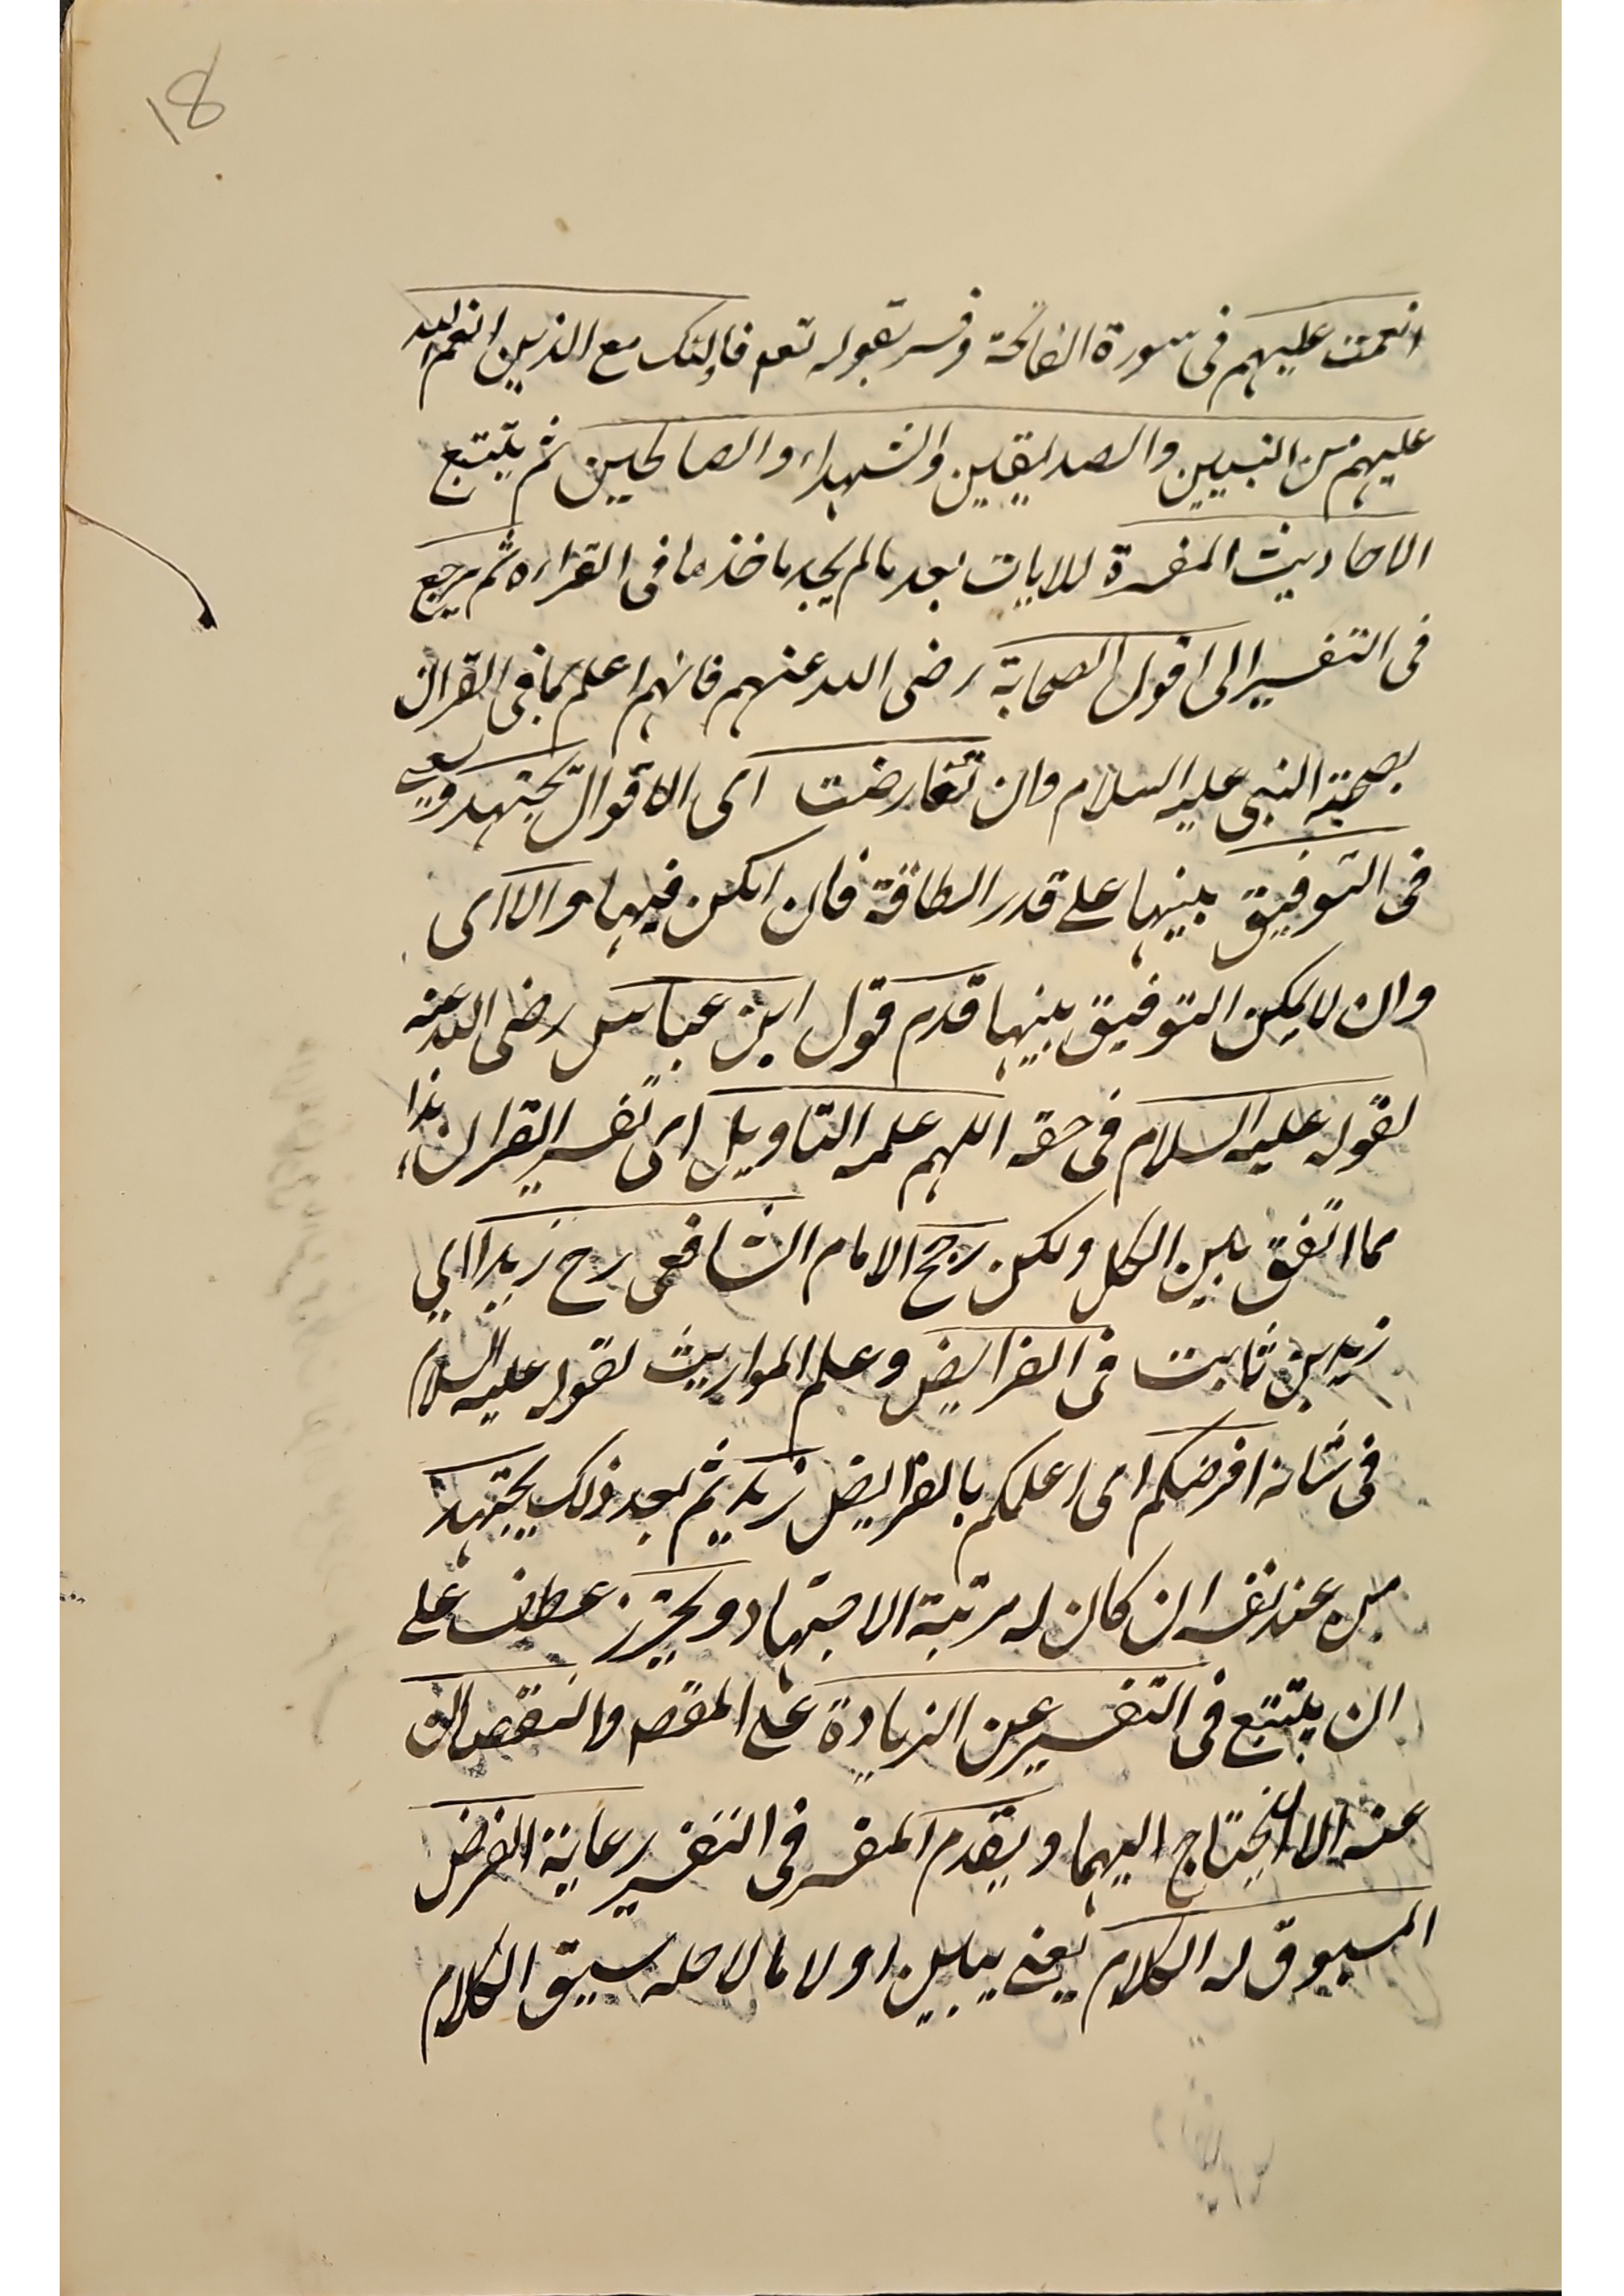 18
انعمت عليهم فى سورة الفاتحة وفسر بقوله تعم فاولئك مع الذين انعم الله
عليهم من النبيين والصديقين والشهداء والصالحين ثم يتتبع
الاحاديث المفسرة للايات بعد مالم يجد ماخذها فى القراءن ثم يرجع
فى التفسير الى اقول الصحابة رضى الله عنهم فانهم اعلم بما فى القران
بصحبة النبى عليه السلام وان تعارضت اى الاقوال يجتهد ويسعى
فى التوفيق بينها على قدر الطاقة فان امكن فبها والا اى
وان لا يمكن التوفيق بينها قدم قول ابن عباس رضى الله عنه
لقوله عليه السلام فى حقه اللهم علمه التاويل اى تفسير القران هذا
مما اتفق بين الكل ولكن رجح الامام الشافعى رح زيدا اى
زيد بن ثابت فى الفرايض وعلم المواريث لقوله عليه السلام
فى شانه افرضكم اى اعلمكم بالفرايض زيد ثم بعد ذلك يجتهد
من عند نفسه ان كان له مرتبة الاجتهاد ويحترز عطف على
ان يتتبع فى التفسير عن الزيادة على المقصد والنقصان
عنه الا ان يحتاج اليهما ويقدم المفسر فى التفسير رعاية الغرض
المسبوق له الكلام يعنى يبين اولا ما لاجله سيق الكلام